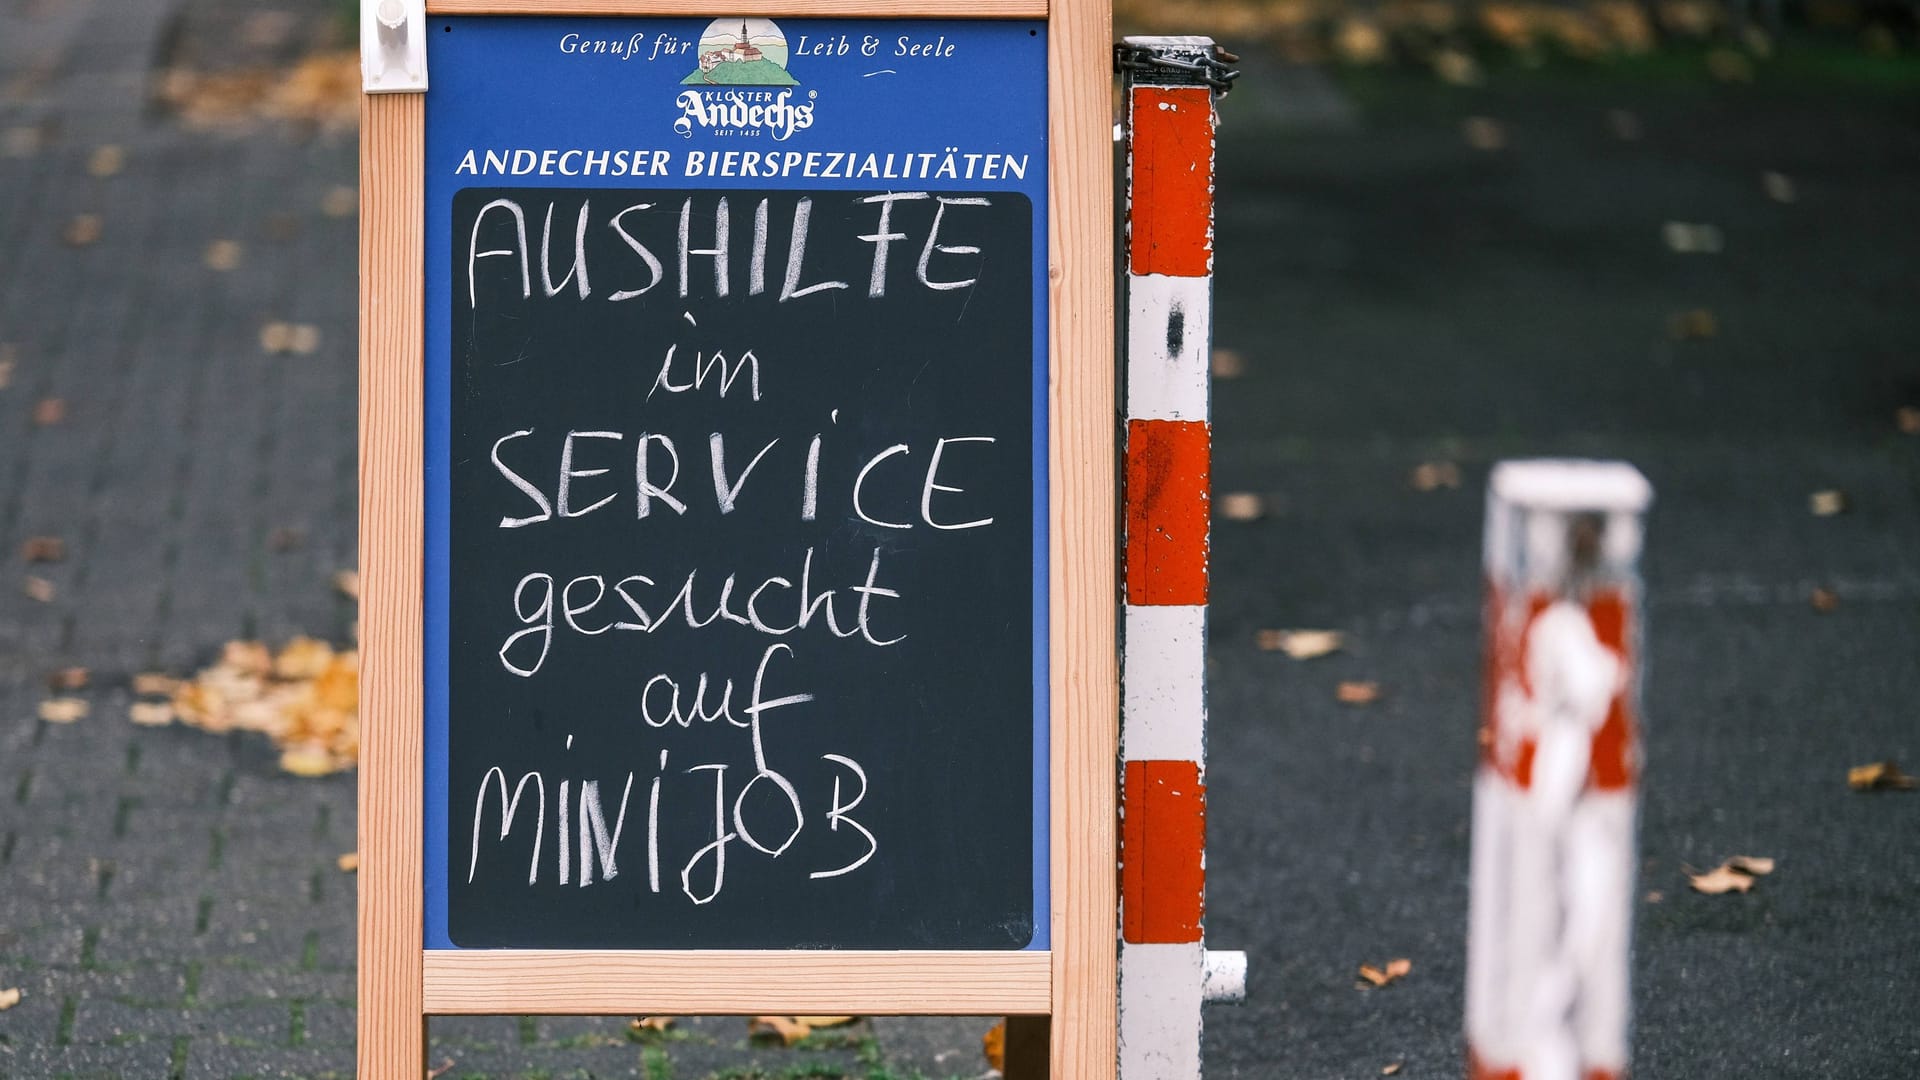 Genuß für Leib & Seele
KLOSTER
Andechs®
SEIT 1455
ANDECHSER BIERSPEZIALITÄTEN
AUSHILFE
im
SERViCE
gesucht
auf
MiNiJOB